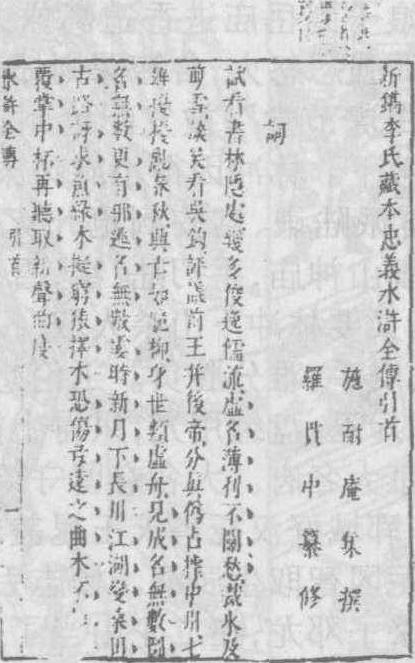 新鐫李氏藏本忠義水滸全傳引首
施耐庵集撰
羅貫中纂修
詞
試看書林隱處幾多俊逸儒流虛名薄利不關愁裁氷及
剪雪談笑看吳鈎評議前王并後帝分真偽占據中州七
雄擾擾亂春秋興亡如脆柳身世類虛舟見成名無數圖
名無數更有那逃名無數霎時新月下長川江湖變桑田
古路訝求魚緣木擬窮猿擇木恐傷弓遠之曲木不
覆掌中杯再聽取新聲曲度
水滸全傳 引首 一